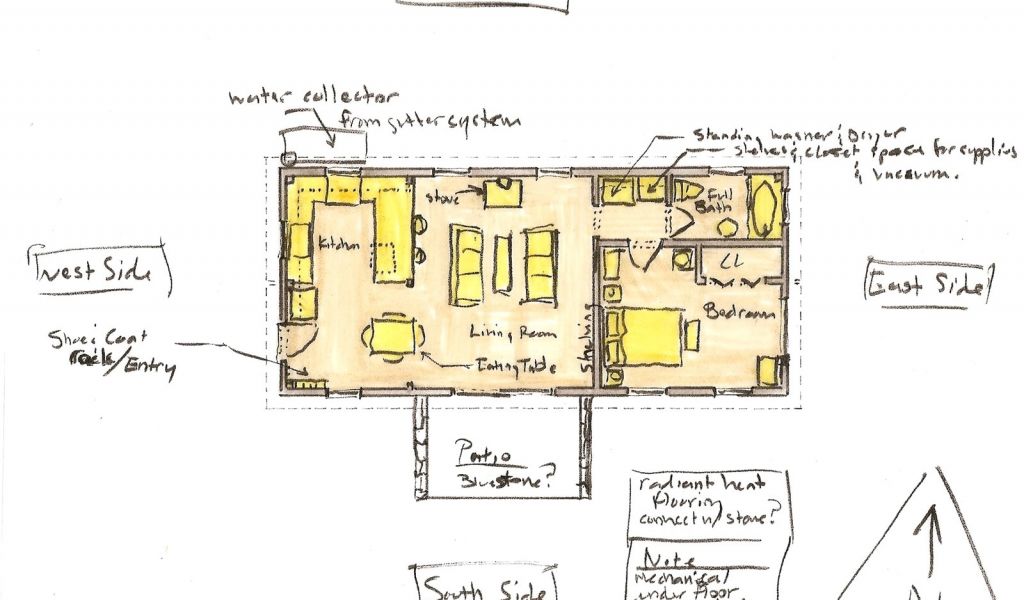 water collector
from gutter system
Standing washer & Dryer
shelves & closet space for supplies
& vacuum.
stove
Full
Bath
Kitchen
West Side
CL
East Side
Bedroom
Shoe & Coat
rack/Entry
Living Room
Shelving
Eating Table
Patio
Bluestone?
radiant heat
flooring
connect w/ stove?
Note
Mechanical
under floor.
South Side